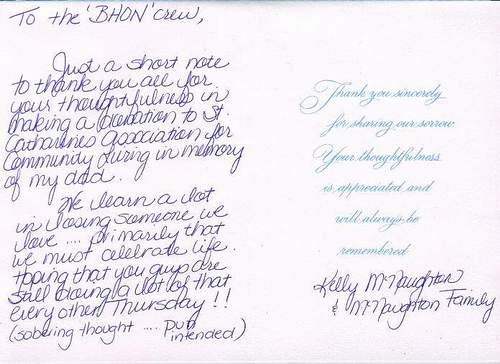 To the 'BHON' crew,
Just a short note
to thank you all for
your thoughtfulness in
making a donation to St.
Catharines Association for
Community Living in memory
of my dad.
We learn a lot
in losing someone we
love .... primarily that
we must celebrate life.
Hoping that you guys are
still doing a lot of that
every other Thursday!!
(sobering thought .... pun
intended)
Thank you sincerely
for sharing our sorrow
Your thoughtfulness
is appreciated and
will always be
remembered
Kelly McNaughton
& McNaughton Family